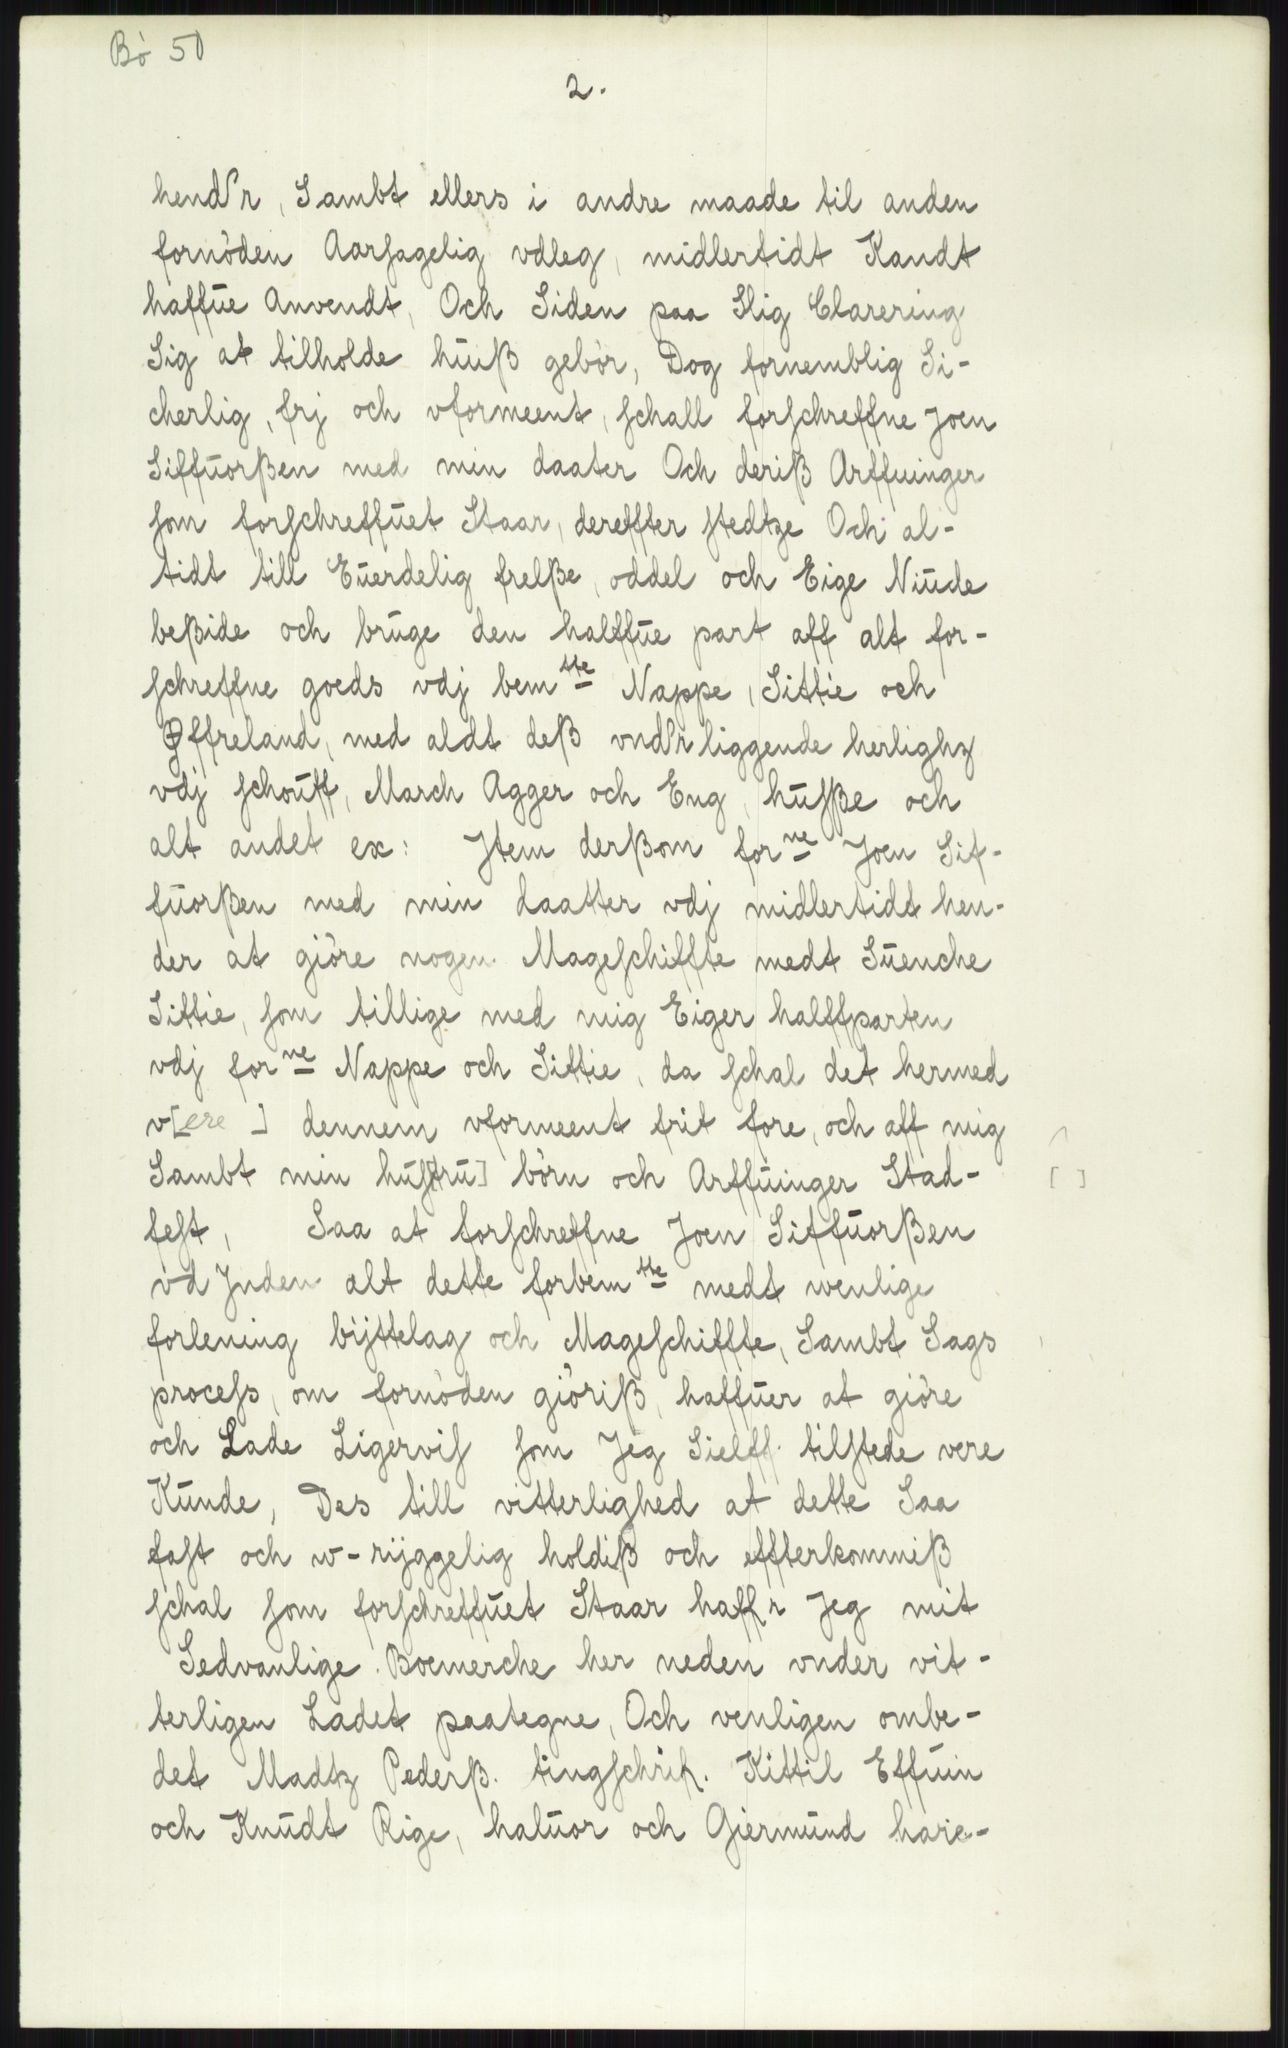 Bö 50
2.
hend'r, Sambt ellers i andre maade til anden
fornöden Aarsagelig vdleg, midlertidt Kandt
haffue Anvendt, Och Siden paa Slig Clarering
Sig at tilholde huiß gebör, Dog fornemblig Si-
cherlig, frj och vformeent, schall forschreffne Joen
Siffuorßen med min daater Och deriß Arffuinger
som forschreffuet Staar, dereffter stedtze Och al-
tidt till Euerdelig frelße, oddel och Eige Niude
beßide och bruge den halffue part aff alt for-
schreffne goeds vdj bemtte Nappe, Sittie och
Øffreland, med aldt deß vnd'rliggende herlighz
vdj schouff, March Agger och Eng, husße och
alt andet ex: Jtem derßom forne Joen Sif-
fuorßen med min daatter vdj midlertidt hen-
der at giöre nogen Mageschiffte medt Suenche
Sittie, som tillige med mig Eiger halffparten
vdj forne Nappe och Sittie, da schal det hermed
v[ere] dennem vformeent frit fore, och aff mig
Sambt min hus[tru] börn och Arffuinger Stad-
[ ]
fest, Saa at forschreffne Joen Siffuorßen
vd Jnden alt dette forbemtte medt wenlige
forlening bÿttelag och Mageschiffte, Sambt Sags
process, om fornöden giöriß, haffuer at giöre
och Lade Ligervis som Jeg Sielff tilstede vere
Kunde, Des till vitterlighed at dette Saa
fast och w-rÿggelig holdiß och effterkommiß
schal som forschreffuet Staar haff'r Jeg mit
Sedvanlige Boemerche her neden vnder vit-
terligen Ladet paategne, Och venligen ombe-
det Madtz Pederß. tingschrif. Kittil Effuin
och Knudt Rige, haluor och Giermund hare-